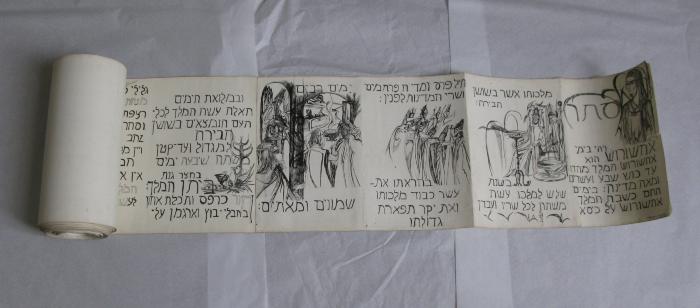 אסתר
ויהי בימי
אחשורוש
הוא
אחשורוש המלך מהודו
ועד כוש שבע ועשרים
ומאה מדינה: בימים
ההם כשבת המלך
אחשורוש על כסא
מלכותו אשר בשושן
הבירה:
בשנת
שלש למלכו עשה
משתה לכל שריו ועבדיו
חיל פרס ומדי הפרתמים
ושרי המדינות לפניו:
בהראתו את-
עשר כבוד מלכותו
ואת יקר תפארת
גדולתו
ימים רבים
שמונים ומאת יום:
ובמלואת הימים
האלה עשה המלך לכל-
העם הנמצאים בשושן
הבירה
למגדול ועד-קטן
משתה שבעת ימים
בחצר גנת
ביתן המלך:
חור כרפס ותכלת אחוז
בחבלי-בוץ וארגמן על-
גלילי
רצפת
וסחר